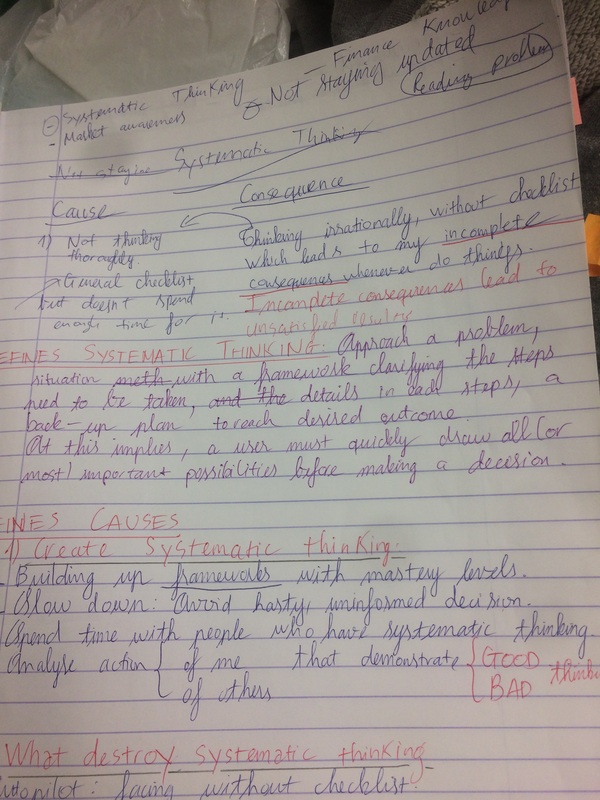 - Systematic Thinking
- Market awareness
- Finance Knowled
- Not staying updated
(Reading problem)
Not staying
Systematic Thinking
Cause
Consequence
1) Not thinking thoroughly.
General checklist
but doesn't spend
enough time for it.
Thinking irrationally, without checklist
which leads to my incomplete
consequences whenever do things.
Incomplete consequences lead to
unsatisfied results
EFINES SYSTEMATIC THINKING: Approach a problem,
situation meth with a framework clarifying the steps
need to be taken, and the details in each steps, a
back-up plan to reach desired outcome
At this implies, a user must quickly draw all (or
most) important possibilities before making a decision.
FINES CAUSES
1) Create Systematic thinking.
- Building up frameworks with mastery levels.
- Slow down: Avoid hasty, uninformed decision.
Spend time with people who have systematic thinking.
Analyse action { of me that demonstrate { GOOD
of others BAD thinki
What destroy systematic thinking
utopilot: facing without checklist.